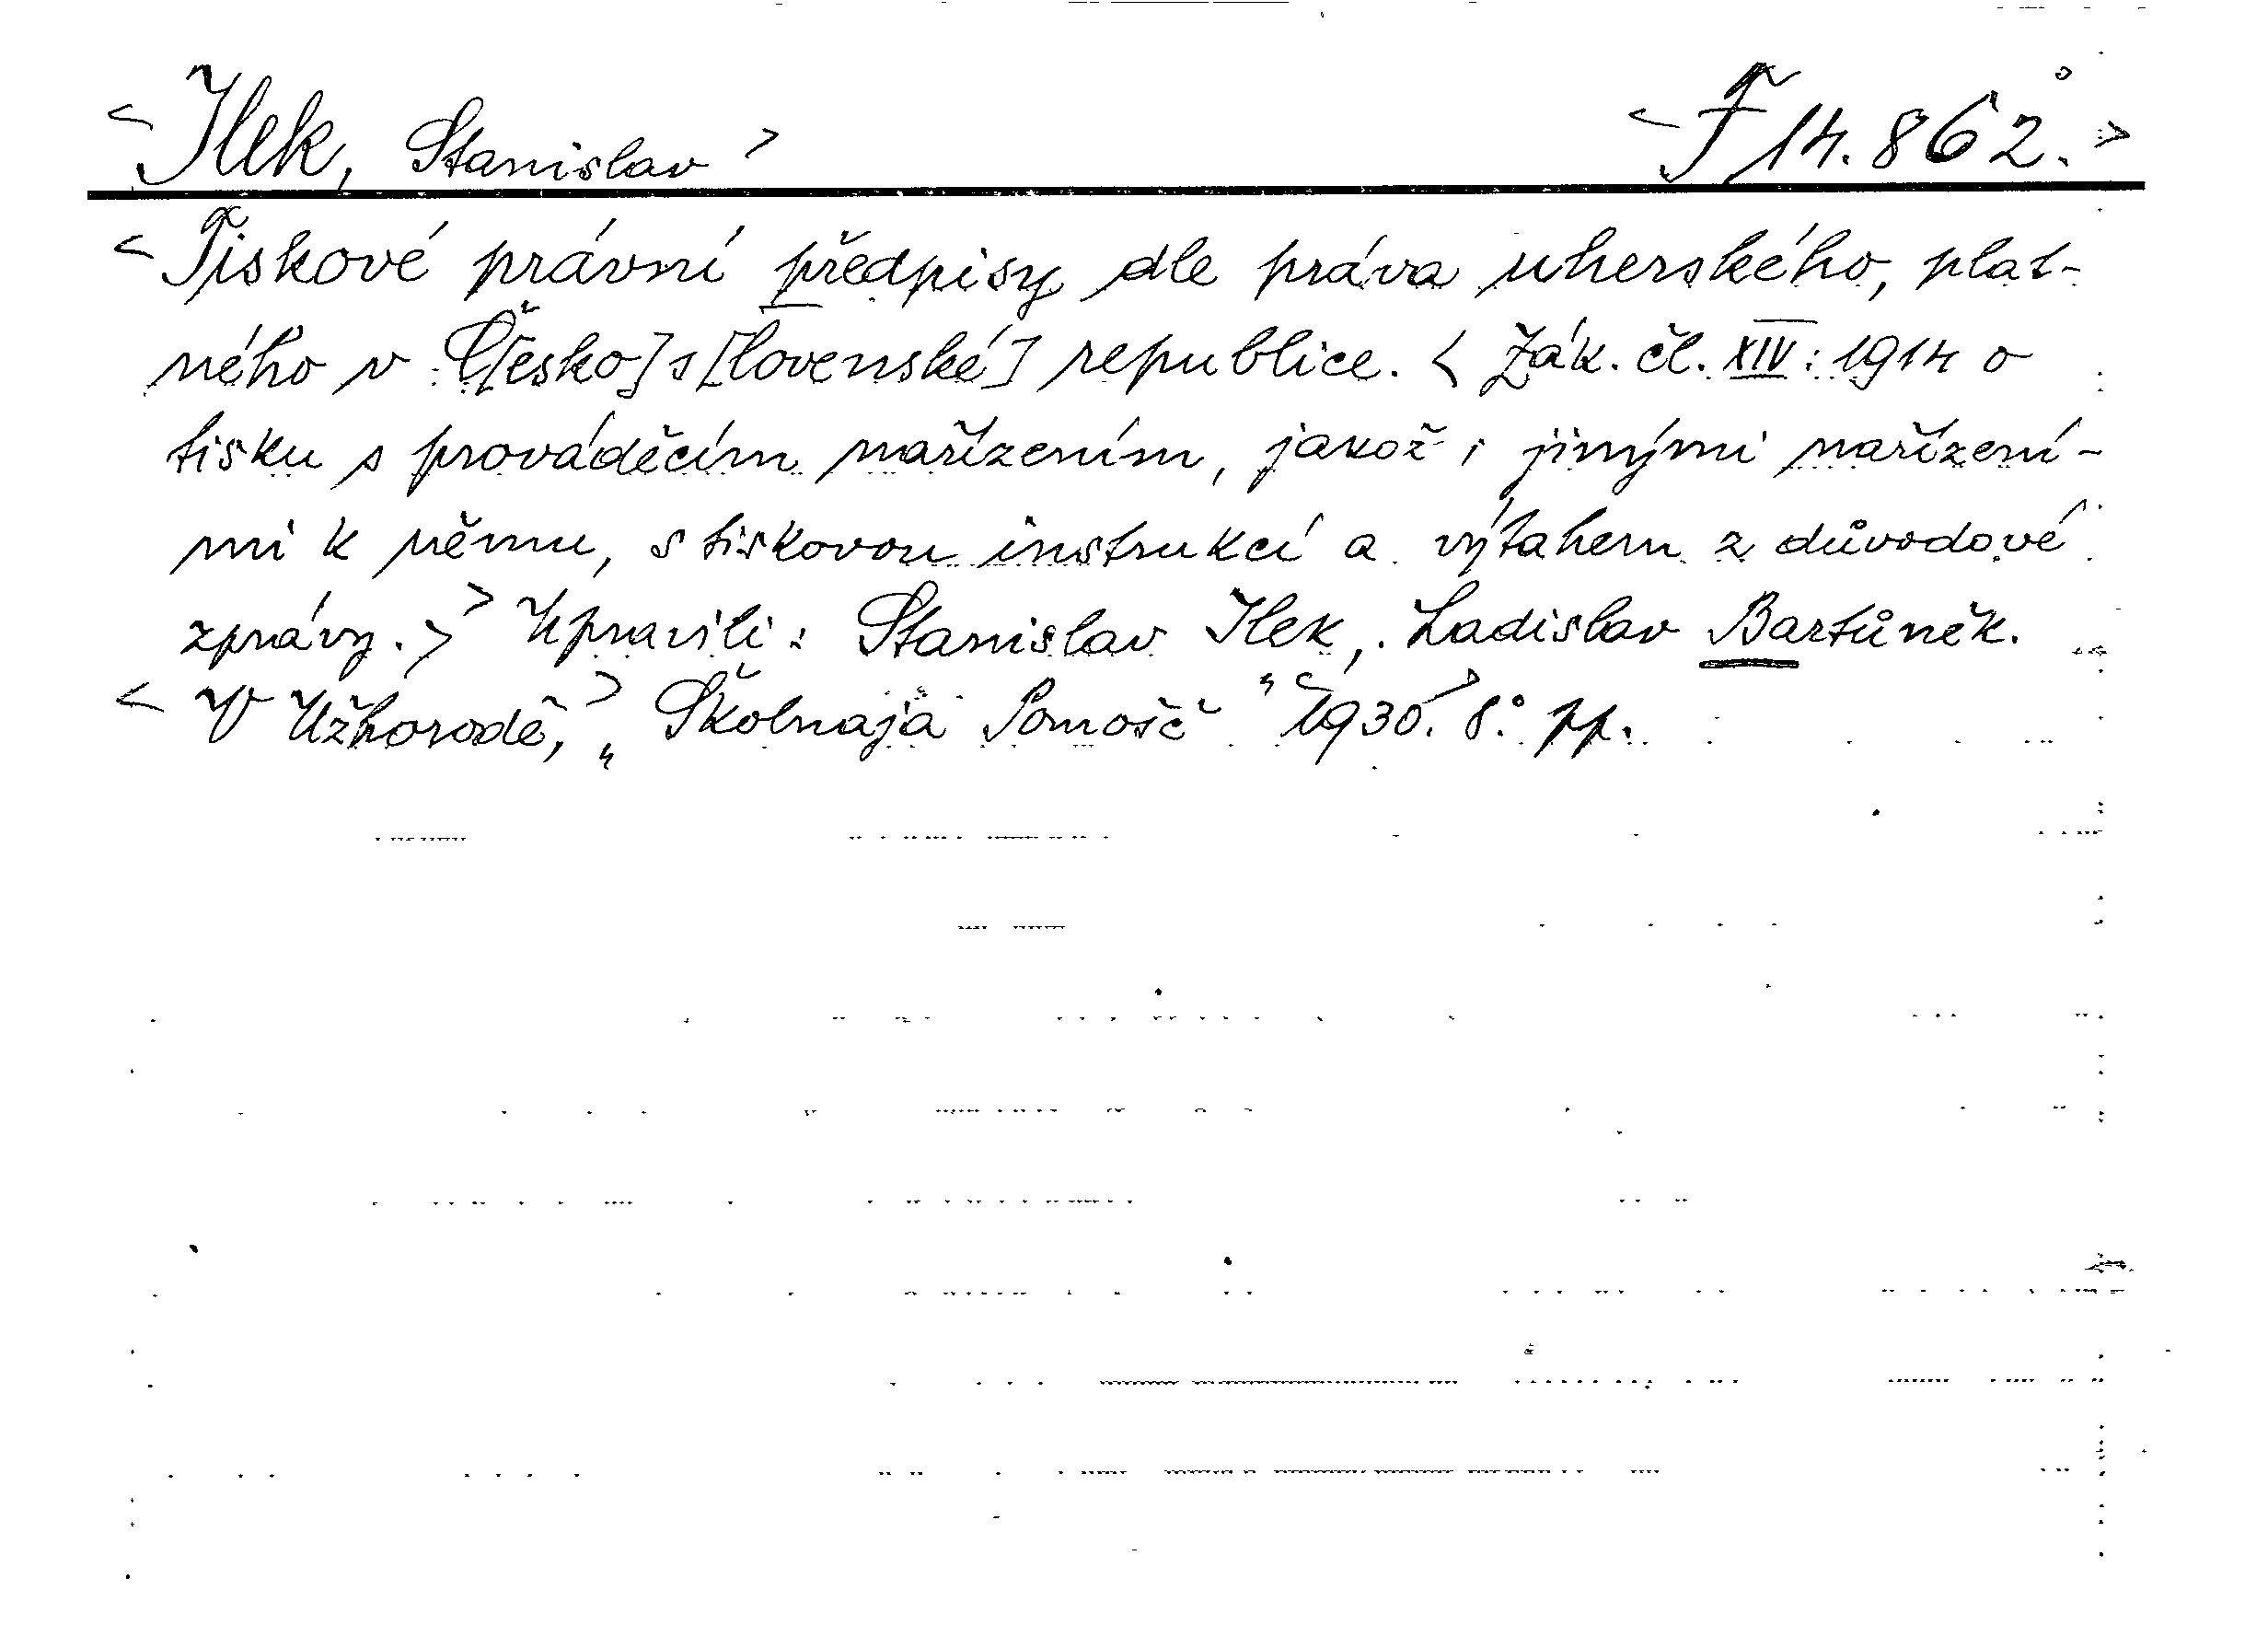 <Ilek, Stanislav> <F 14.862.>
<Tiskové právní předpisy dle práva uherského, plat-
ného v Č[esko]s[lovenské] republice. < Zák. čl. XIV: 1914 o
tisku s prováděcím nařízením, jakož i jinými nařízení-
mi k němu, s tiskovou instrukcí a výtahem z důvodové
zprávy.>> Upravili: Stanislav Ilek, Ladislav Bartůněk.
<V Užhorodě,> „Školnaja Pomošč" <1930.> 8° pp.